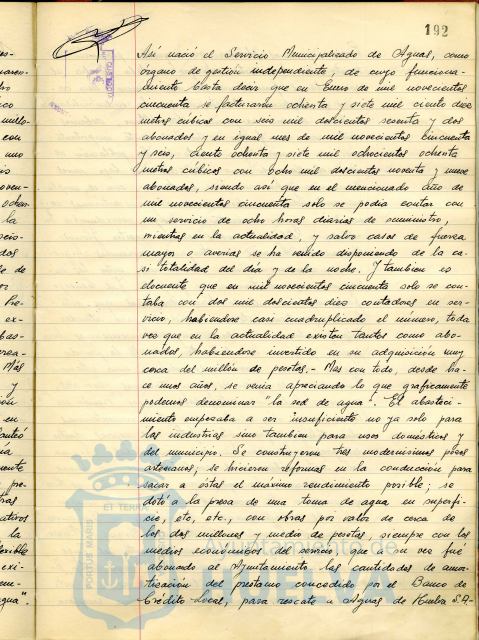 192
Así nació el Servicio Municipalizado de Aguas, como
órgano de gestión independiente, de cuyo funciona-
miento basta decir que en Enero de mil novecientos
cincuenta se facturaron ochenta y siete mil ciento doce
metros cúbicos con seis mil doscientos sesenta y dos
abonados y en igual mes de mil novecientos cincuenta
y seis, ciento ochenta y siete mil ochocientos ochenta
metros cúbicos con ocho mil doscientos noventa y nueve
abonados, siendo así que en el mencionado año de
mil novecientos cincuenta solo se podía contar con
un servicio de ocho horas diarias de suministro,
mientras en la actualidad, y salvo casos de fuerza
mayor o averias se ha venido disponiendo de la ca-
si totalidad del dia y de la noche. Y tambien es
elocuente que en mil novecientos cincuenta solo se con-
taba con dos mil doscientos diez contadores en ser-
vicio, habiendose casi cuadruplicado el número, toda
vez que en la actualidad existen tantos como abo-
nados, habiendose invertido en su adquisición muy
cerca del millón de pesetas.- Mas con todo, desde ha-
ce unos años, se venia apreciando lo que graficamente
podemos denominar "la sed de agua". El abasteci-
miento empezaba a ser insuficiente no ya solo para
las industrias sino tambien para usos domésticos y
del municipio. Se construyeron tres modernisimos pozos
artesianos; se hicieron reformas en la conducción para
sacar a éstas el máximo rendimiento posible; se
dotó a la presa de una toma de agua en superfi-
cie, etc, etc., con obras por valor de cerca de
los dos millones y medio de pesetas siempre con los
medios económicos del servicio, que a su vez fué
abonando al Ayuntamiento las cantidades de amor-
tización del préstamo concedido por el Banco de
Crédito Local, para rescate a Aguas de Huelva S.A-